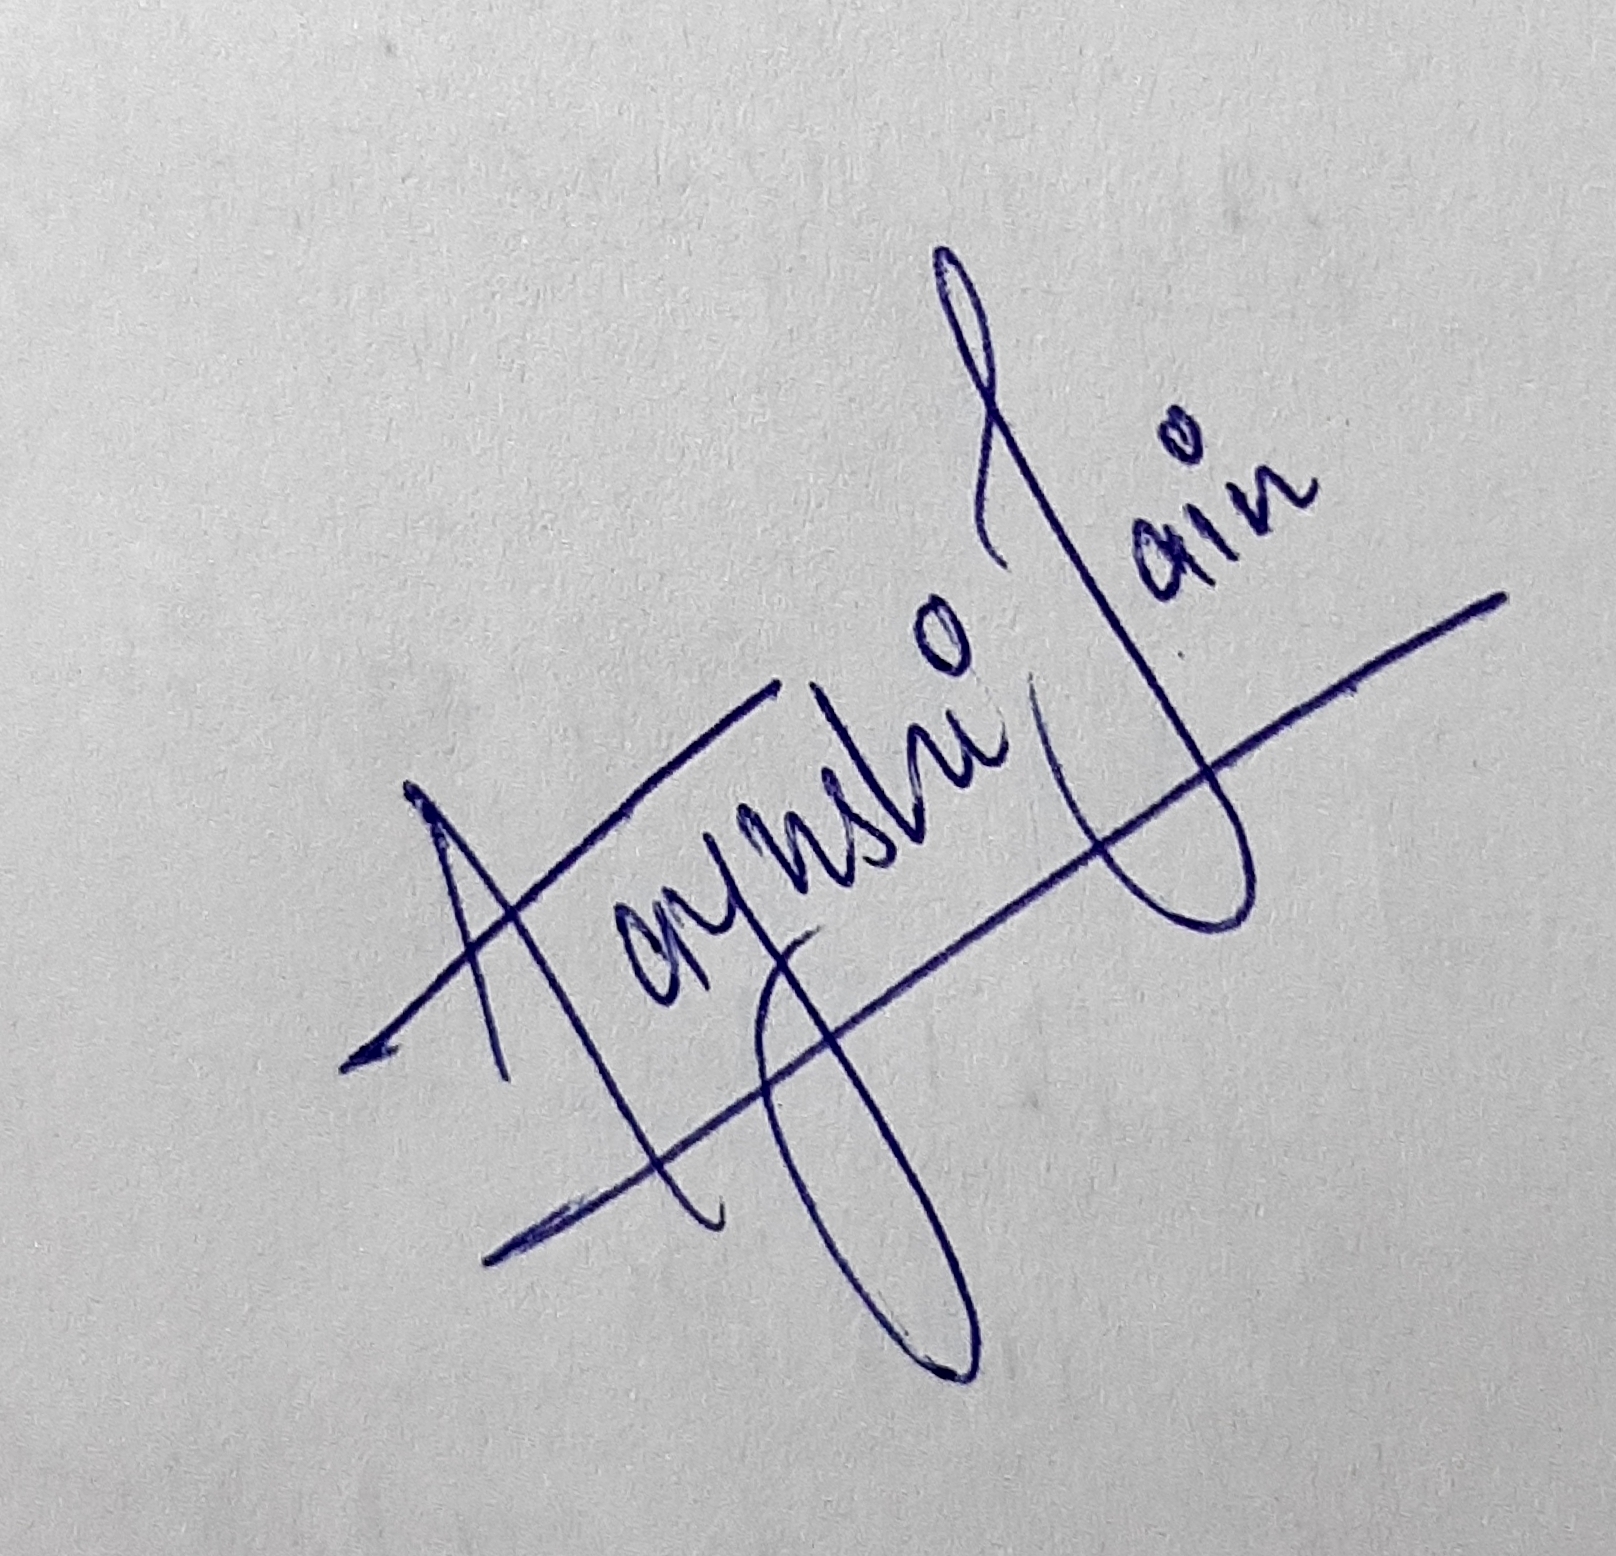 Aayushi Jain